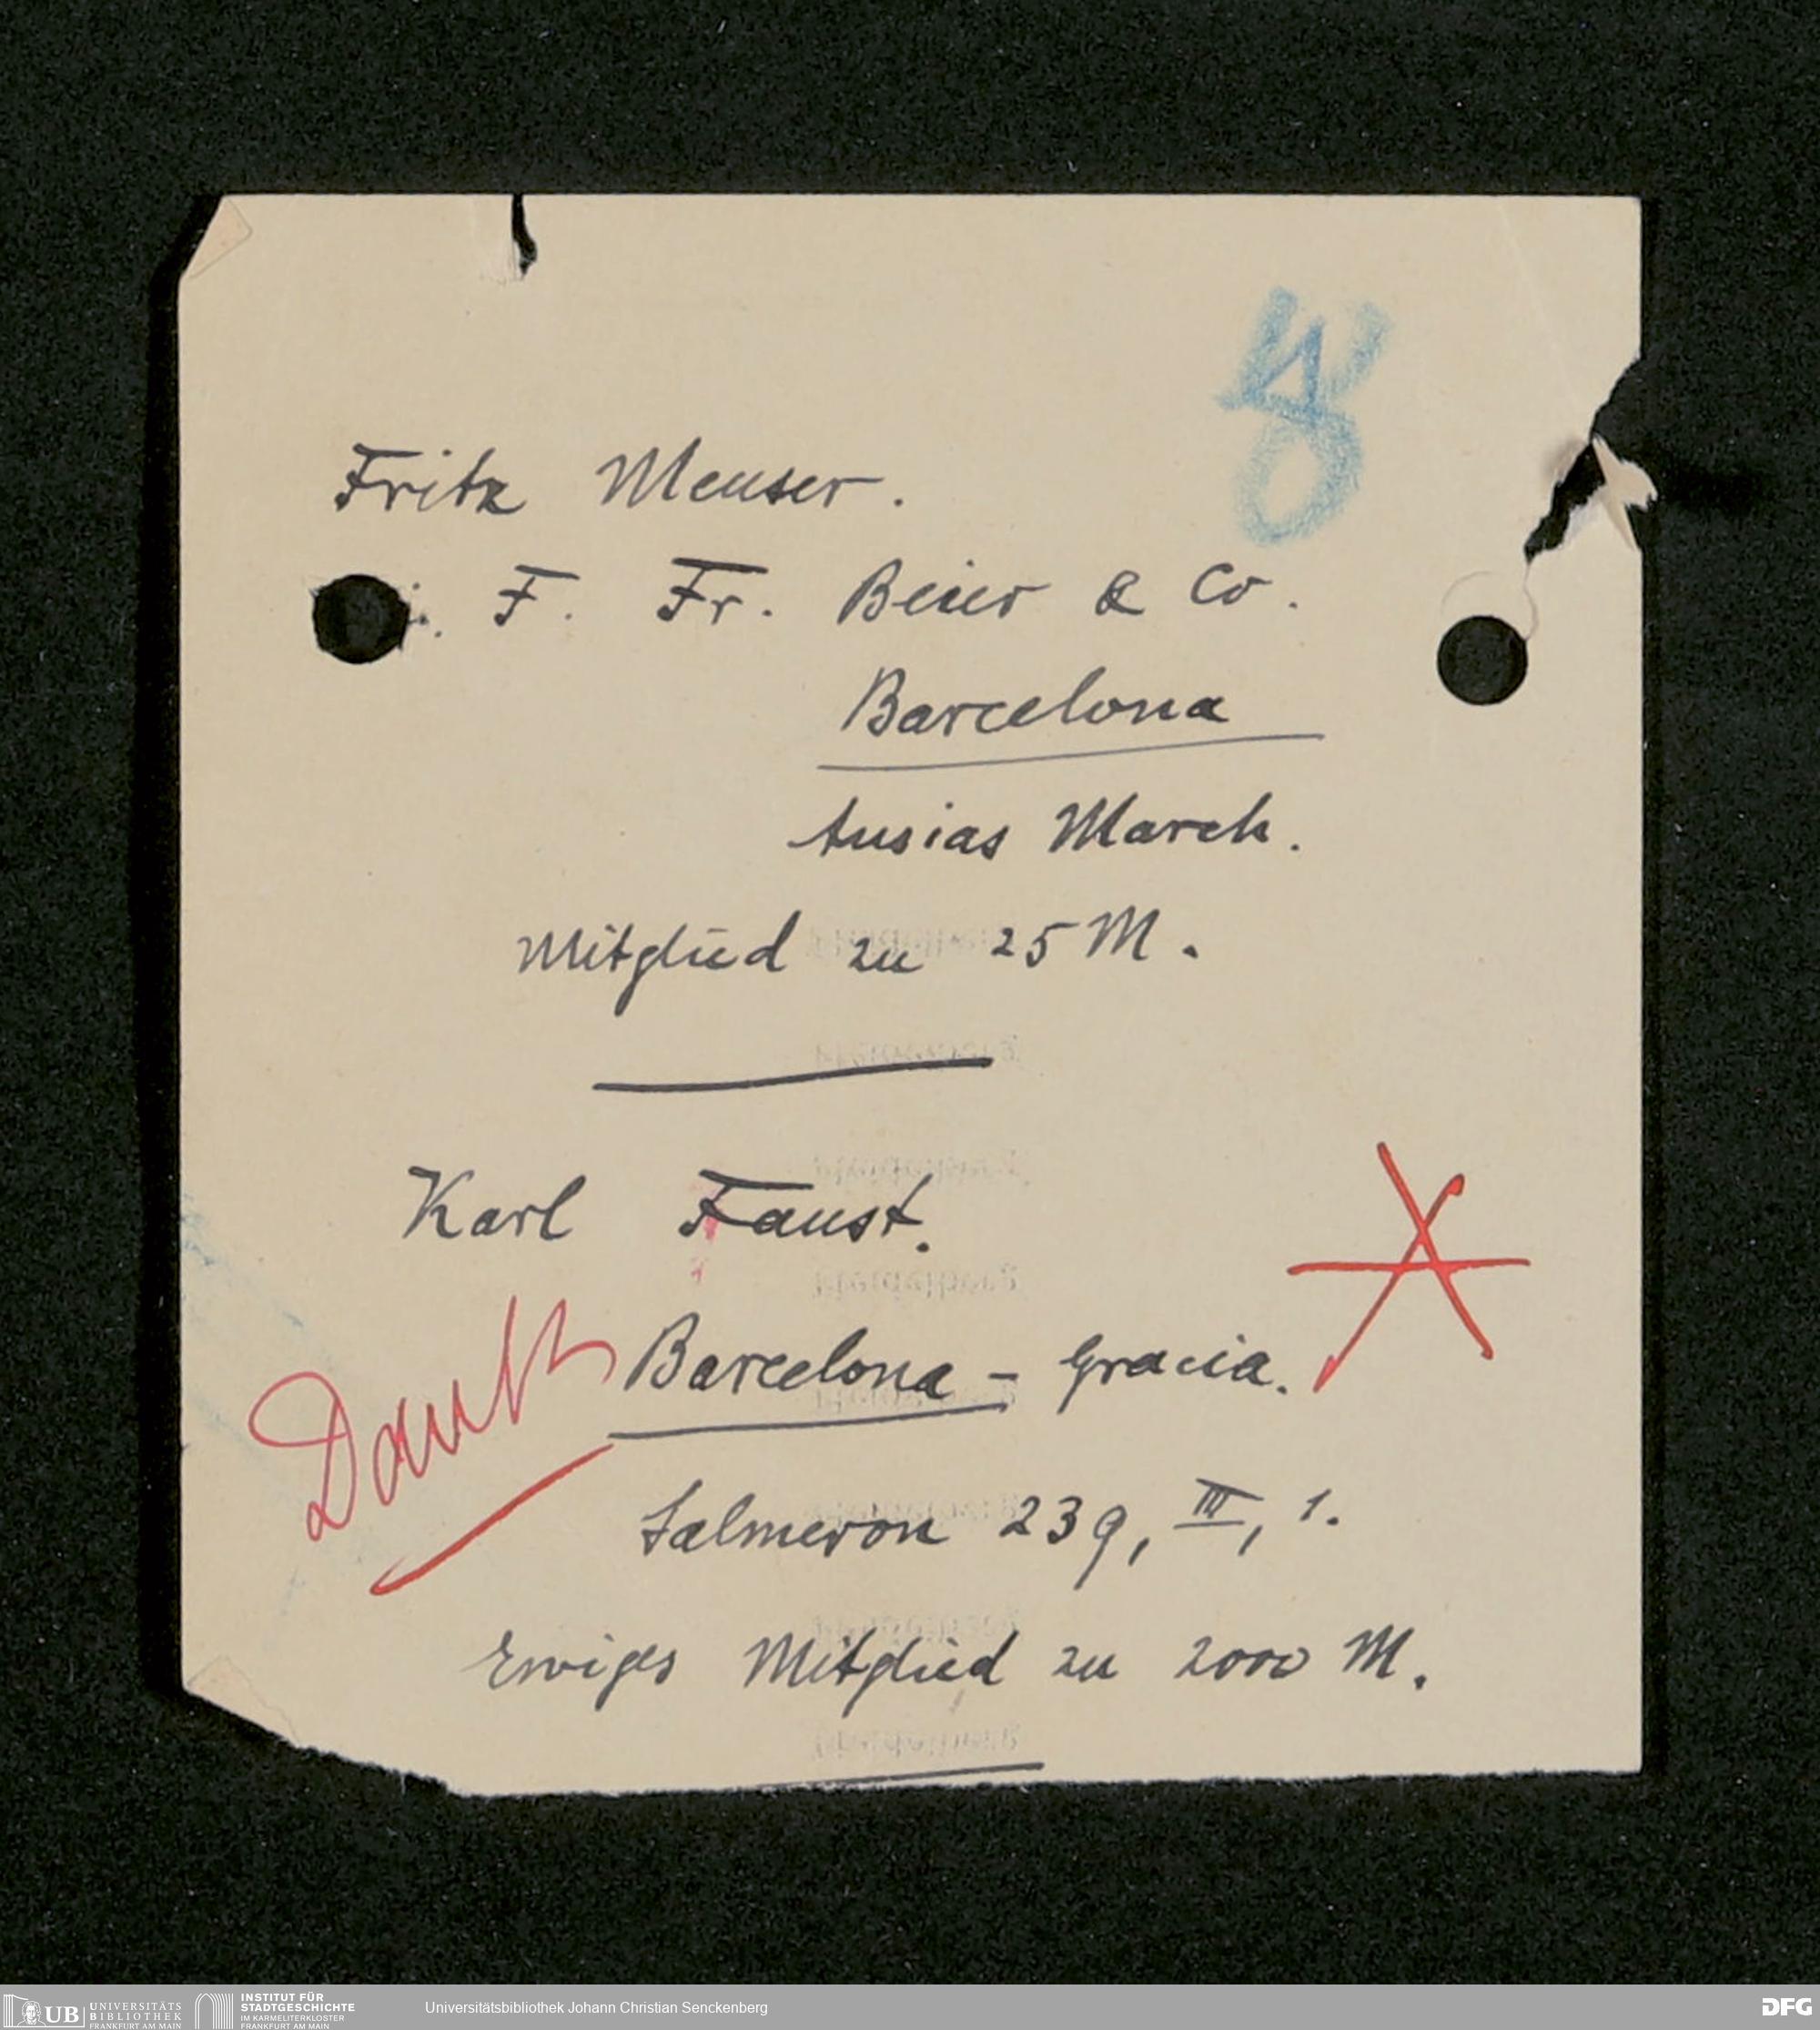 8
Fritz Meuser.
i. F. Fr. Beier & Co.
Barcelona
Ausias March.
Mitglied zu 25 M.
Karl Faust.
Barcelona - Gracia.
Dank
Salmeron 239, III, 1.
Ewiges Mitglied zu 2000 M.
UB UNIVERSITÄTS
BIBLIOTHEK
FRANKFURT AM MAIN
INSTITUT FÜR
STADTGESCHICHTE
IM KARMELITERKLOSTER
FRANKFURT AM MAIN
Universitätsbibliothek Johann Christian Senckenberg
DFG